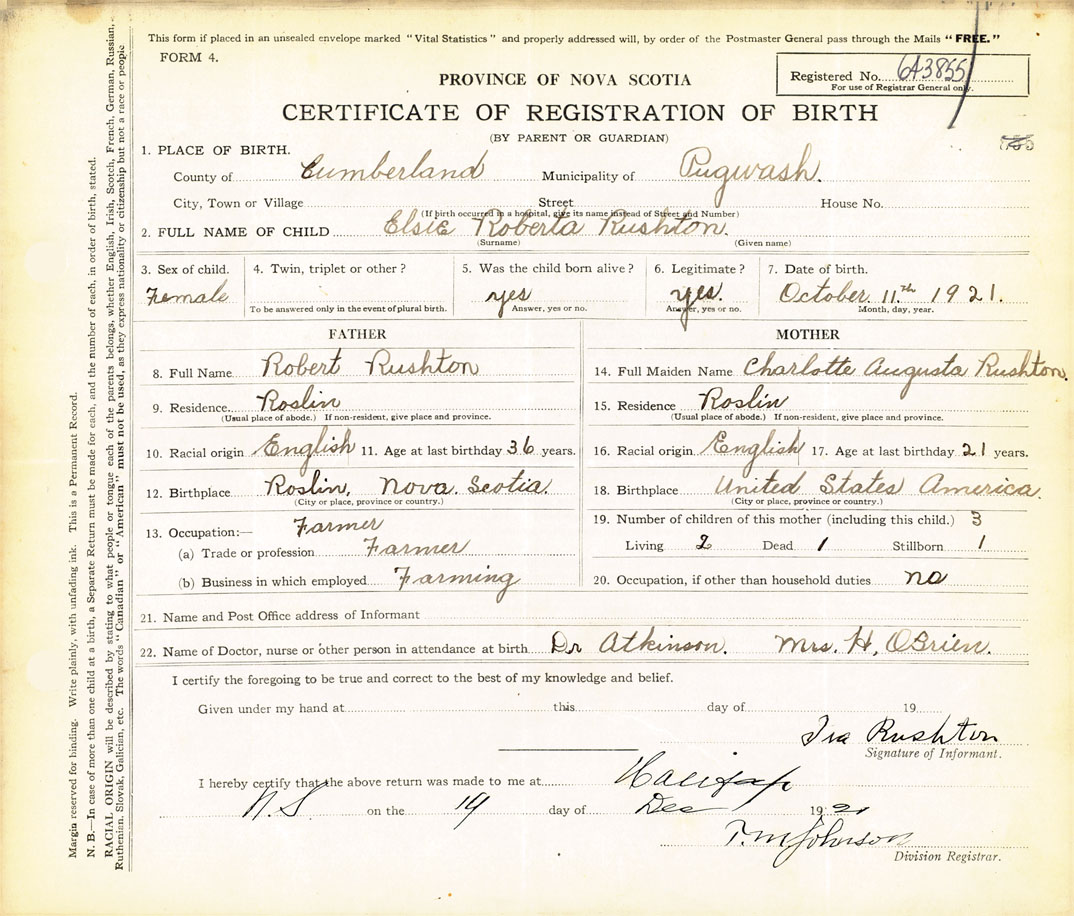 This form if placed in an unsealed envelope marked "Vital Statistics" and properly addressed will, by order of the Postmaster General pass through the Mails "FREE."
FORM 4.
Registered No. 643855
For use of Registrar General only.
PROVINCE OF NOVA SCOTIA
CERTIFICATE OF REGISTRATION OF BIRTH
(BY PARENT OR GUARDIAN)
1. PLACE OF BIRTH.
County of Cumberland Municipality of Pugwash.
City, Town or Village Street House No.
(If birth occurred in a hospital, give its name instead of Street and Number)
2. FULL NAME OF CHILD Elsie Roberta Rushton.
(Surname) (Given name)
3. Sex of child. 4. Twin, triplet or other? 5. Was the child born alive? 6. Legitimate? 7. Date of birth.
Female yes yes. October. 11.th 1921.
To be answered only in the event of plural birth. Answer, yes or no. Answer, yes or no. Month, day, year.
FATHER
8. Full Name Robert Rushton
9. Residence Roslin
(Usual place of abode.) If non-resident, give place and province.
10. Racial origin English 11. Age at last birthday 36 years.
12. Birthplace Roslin, Nova. Scotia.
(City or place, province or country.)
13. Occupation:— Farmer
(a) Trade or profession Farmer
(b) Business in which employed Farming
MOTHER
14. Full Maiden Name Charlotte Augusta Rushton.
15. Residence Roslin
(Usual place of abode.) If non-resident, give place and province.
16. Racial origin English 17. Age at last birthday 21 years.
18. Birthplace United States America.
(City or place, province or country.)
19. Number of children of this mother (including this child.) 3
Living 2 Dead 1 Stillborn 1
20. Occupation, if other than household duties no
21. Name and Post Office address of Informant
22. Name of Doctor, nurse or other person in attendance at birth Dr Atkinson. Mrs. H. OBrien.
I certify the foregoing to be true and correct to the best of my knowledge and belief.
Given under my hand at this day of 19
Ira Rushton
Signature of Informant.
I hereby certify that the above return was made to me at Halifax
N.S on the 19 day of Dec 1921
T. M Johnson
Division Registrar.
Margin reserved for binding. Write plainly, with unfading ink. This is a Permanent Record.
N. B.—In case of more than one child at a birth, a Separate Return must be made for each, and the number of each, in order of birth, stated.
RACIAL ORIGIN will be described by stating to what people or tongue each of the parents belongs, whether English, Irish, Scotch, French, German, Russian,
Ruthenian, Slovak, Galician, etc. The words "Canadian" or "American" must not be used, as they express nationality or citizenship but not a race or people